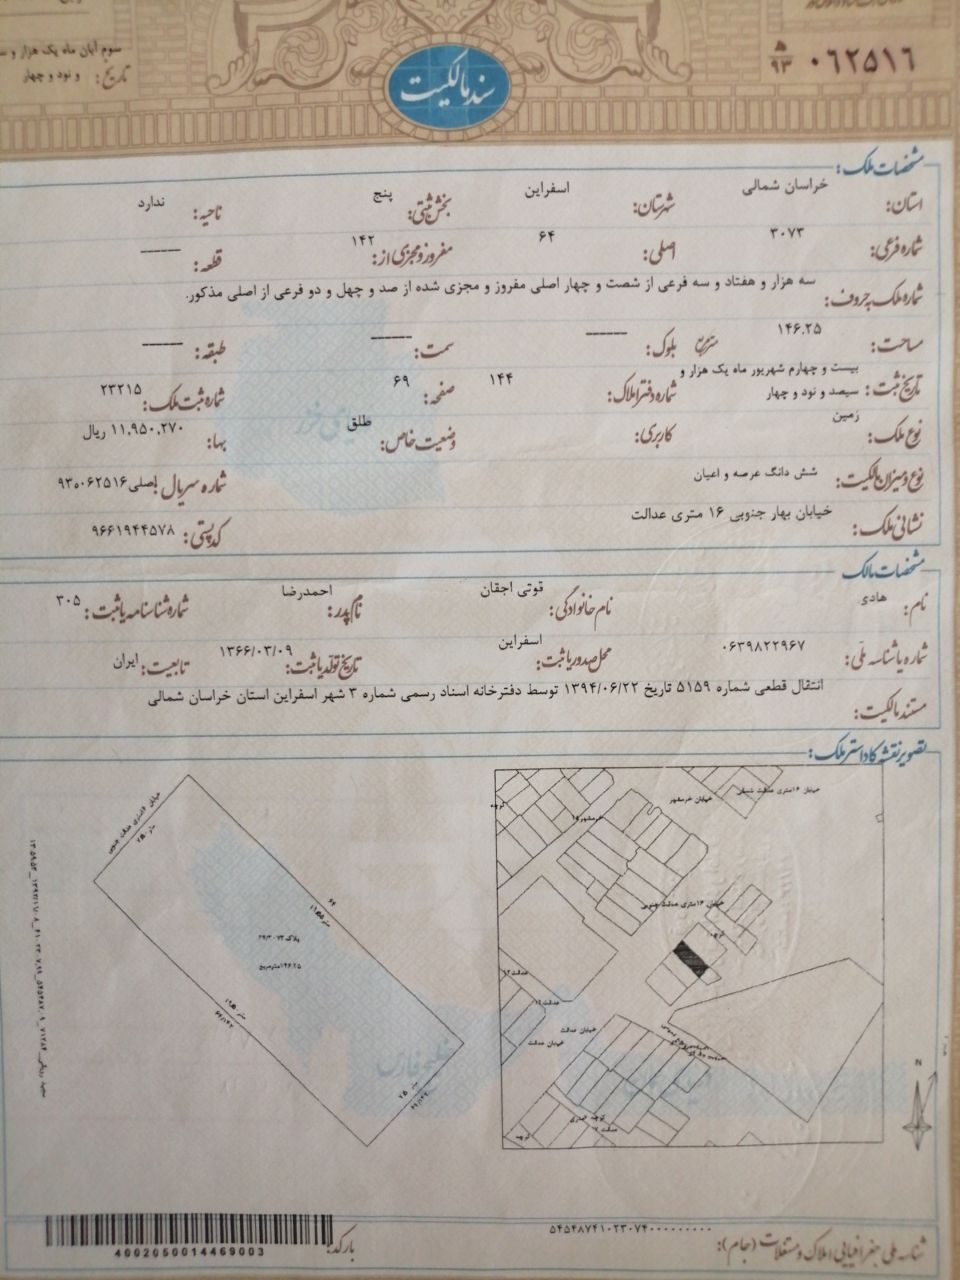 سوم آبان ماه یک هزار و
تاریخ: و نود و چهار
۵
۹۳ ۰۶۲۵۱۶
سند مالکیت
مشخصات ملک:
استان: خراسان شمالی شهرستان: اسفراین بخش ثبتی: پنج ناحیه: ندارد
شماره فرعی: ۳۰۷۳ اصلی: ۶۴ مفروز و مجزی از: ۱۴۲ قطعه: -----
شماره ملک به حروف: سه هزار و هفتاد و سه فرعی از شصت و چهار اصلی مفروز و مجزی شده از صد و چهل و دو فرعی از اصلی مذکور.
مساحت: ۱۴۶.۲۵ مترمربع بلوک: ----- سمت: ----- طبقه: -----
تاریخ ثبت: بیست و چهارم شهریور ماه یک هزار و سیصد و نود و چهار شماره دفتر املاک: ۱۴۴ صفحه: ۶۹ شماره ثبت ملک: ۲۳۲۱۵
نوع ملک: زمین کاربری: وضعیت خاص: طلق بها: ۱۱,۹۵۰,۲۷۰ ریال
نوع و میزان مالکیت: شش دانگ عرصه و اعیان شماره سریال اصلی: ۹۳۵۰۶۲۵۱۶
نشانی ملک: خیابان بهار جنوبی ۱۶ متری عدالت کد پستی: ۹۶۶۱۹۴۴۵۷۸
مشخصات مالک
نام: هادی نام خانوادگی: قوتی اجقان نام پدر: احمدرضا شماره شناسنامه یا ثبت: ۳۰۵
شماره یا شناسه ملی: ۰۶۳۹۸۲۲۹۶۷ محل صدور یا ثبت: اسفراین تاریخ تولد یا ثبت: ۱۳۶۶/۰۳/۰۹ تابعیت: ایران
مستند مالکیت: انتقال قطعی شماره ۵۱۵۹ تاریخ ۱۳۹۴/۰۶/۲۲ توسط دفترخانه اسناد رسمی شماره ۳ شهر اسفراین استان خراسان شمالی
تصویر نقشه کاداستر ملک:
خیابان ۱۶ متری عدالت جنوبی
۷.۵۰ متر
۶۴
پلاک ۶۴/۳۰۷۳
۱۴۶.۲۵ مترمربع
۱۹.۵۰ متر
۶۴/۱۴۲
۷.۵۰ متر
۶۴/۱۴۲
خیابان ۱۶ متری عدالت شمالی
خیابان خرمشهر
خرمشهر
خیابان ۱۶ متری عدالت جنوبی
کوچه
عدالت ۱۲
خیابان عدالت
خیابان عدالت
کوچه
N
دریای خزر
خلیج فارس
دریای عمان
شناسه ملی جغرافیایی املاک و مستغلات (جام): ۵۴۵۴۸۷۴۱۰۲۳۰۷۴۰۰۰۰۰۰۰۰۰
بارکد:
4002050014469003